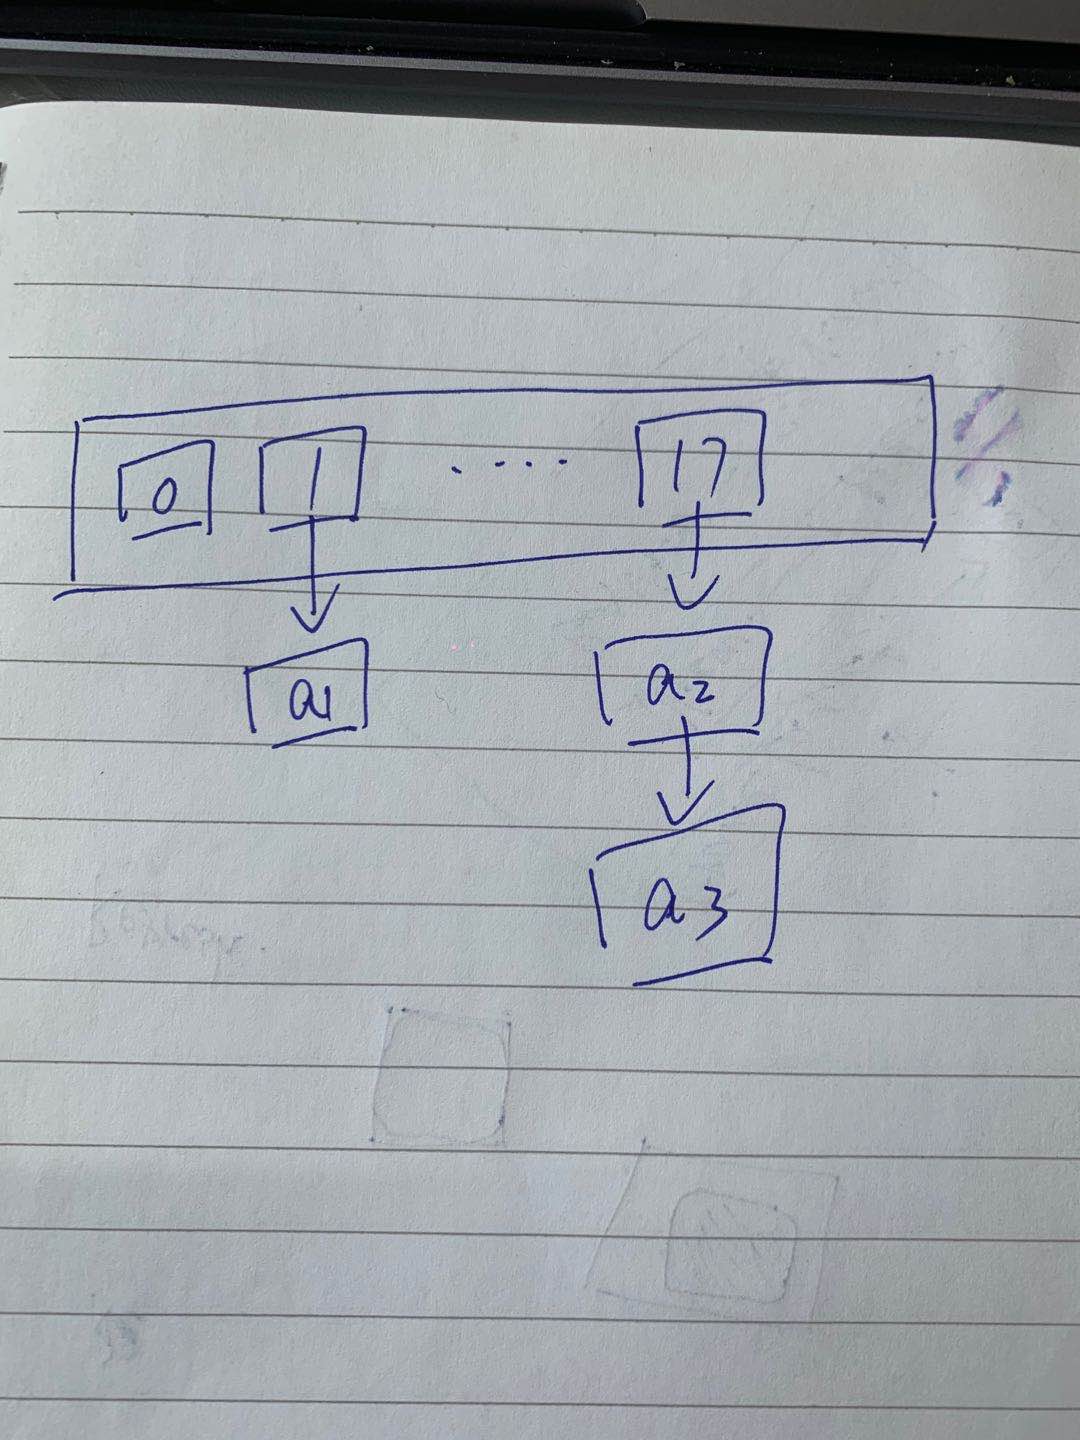 0 1 .... 17
a1 a2
a3